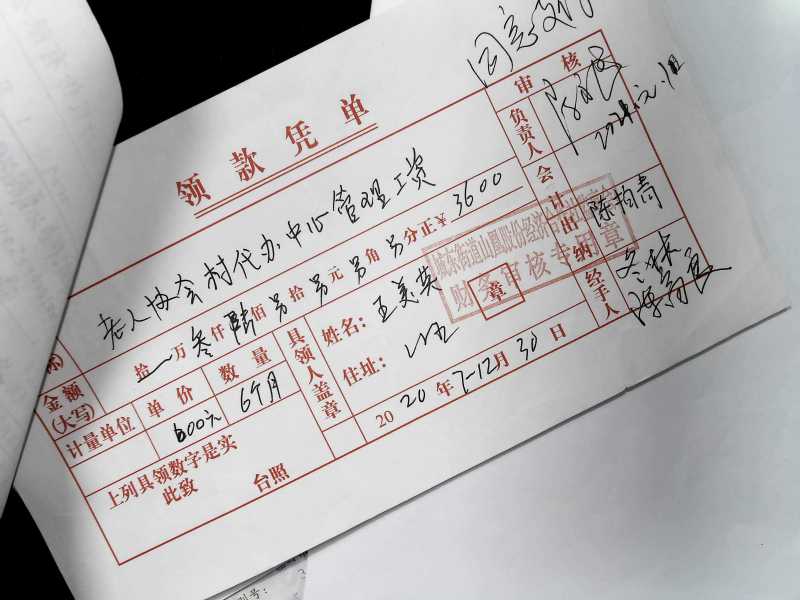 同意支付
领款凭单
审核
负责人
老人协会村代办中心管理工资
会计
拾 万 叁 仟 陆 佰 另 拾 另 元 另 角 另 分正¥ 3600
城东街道山圆股份经济合作社
财务审核专用章
出纳 陈均高
金额
(大写)
计量单位 单价 数量
600元 6个月
具领人盖章
姓名: 王美英 章
住址: 山王
经手人
2020年7-12月30日
上列具领数字是实
此致
台照
别号: